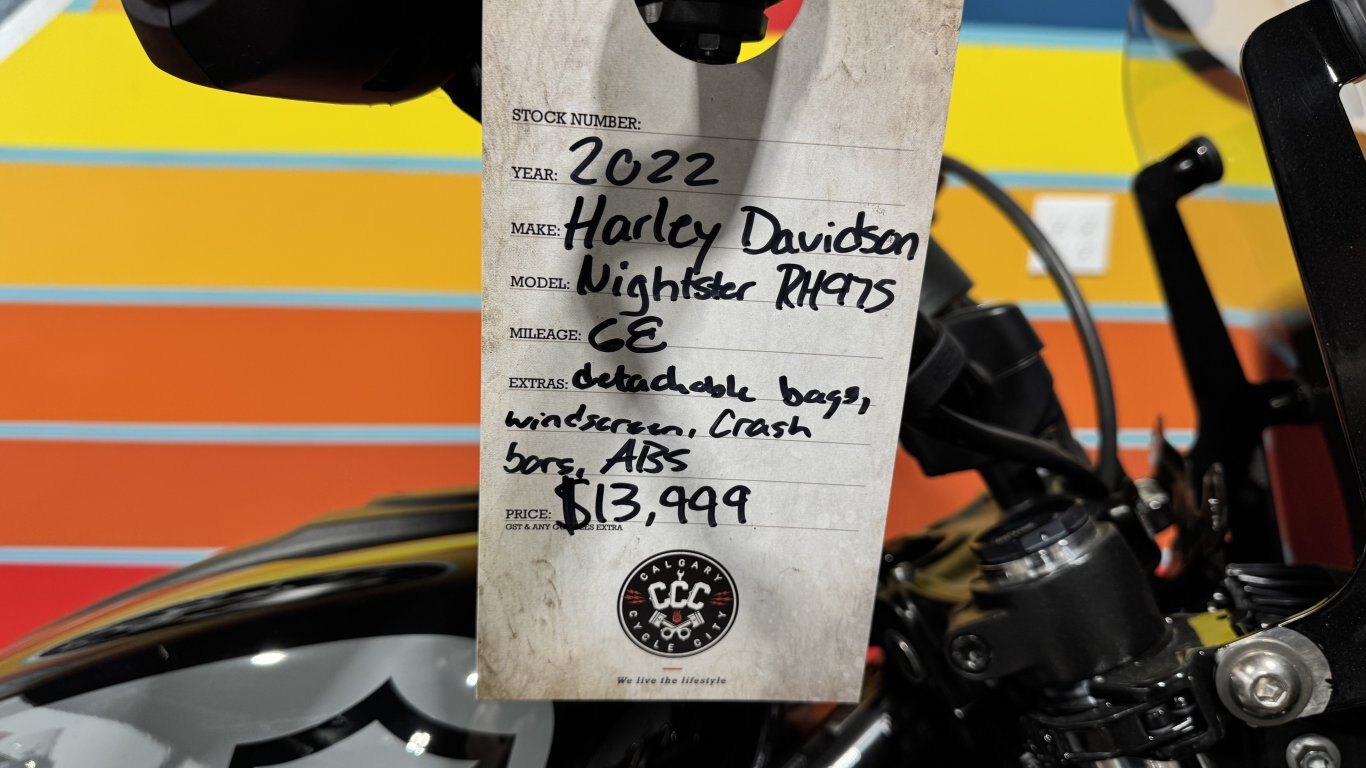 STOCK NUMBER:
YEAR: 2022
MAKE: Harley Davidson
MODEL: Nightster RH975
MILEAGE:
EXTRAS: detachable bags,
windscreen, Crash
bars, ABS
PRICE: $13,999
GST & ANY EXTRA
CALGARY
CCC
CYCLE CITY
We live the lifestyle